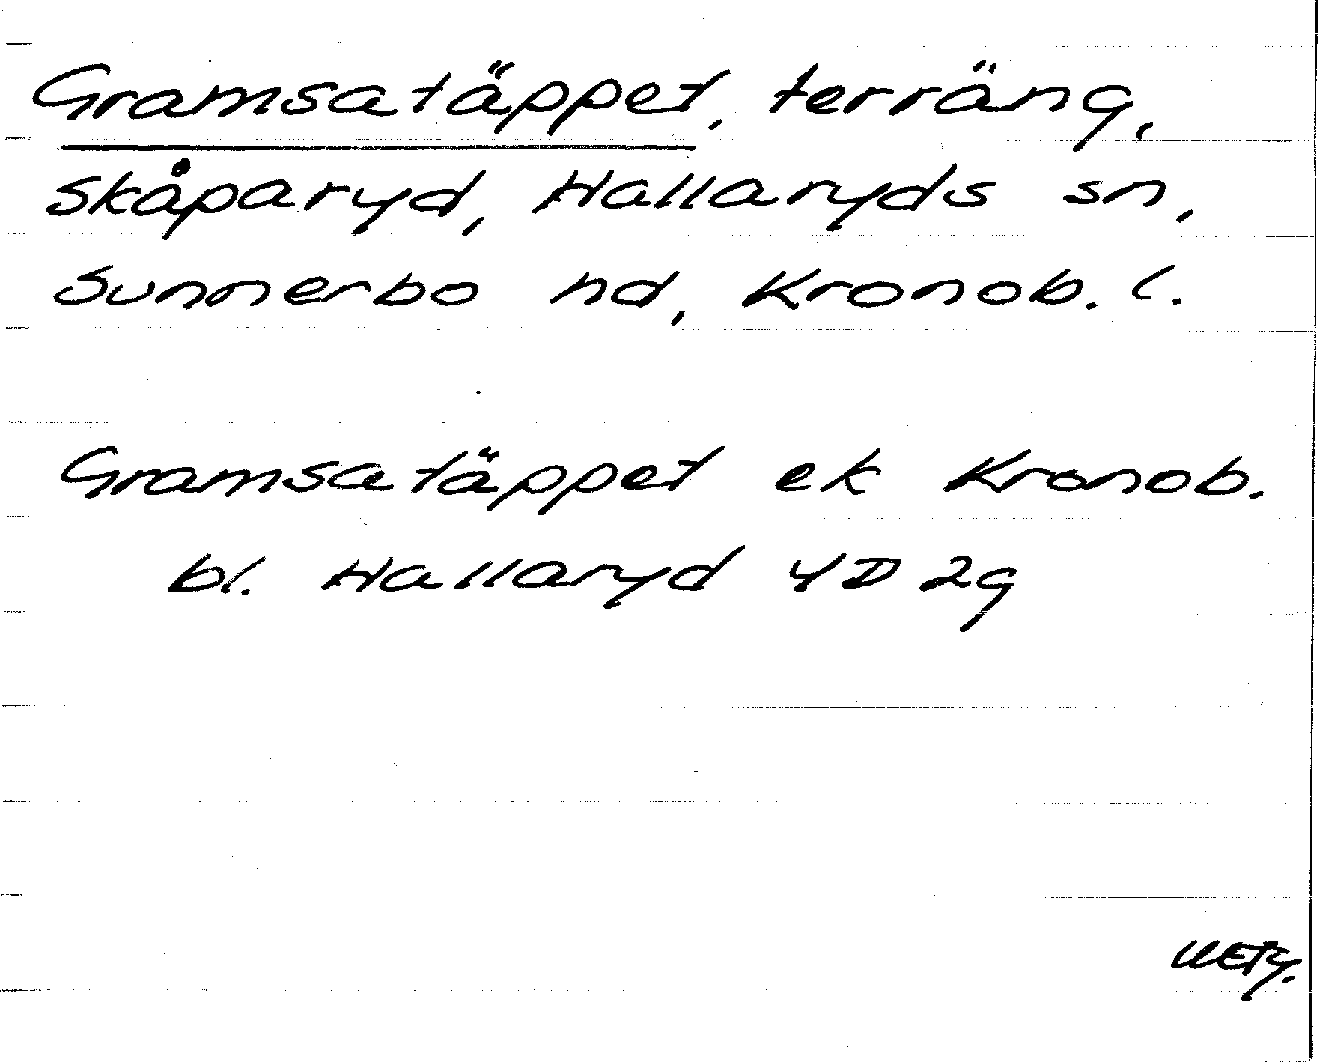 Gramsatäppet, terräng,
Skåparyd, Hallaryds sn,
Sunnerbo hd, Kronob. l.
Gramsatäppet ek Kronob.
bl. Hallaryd 4D 2g